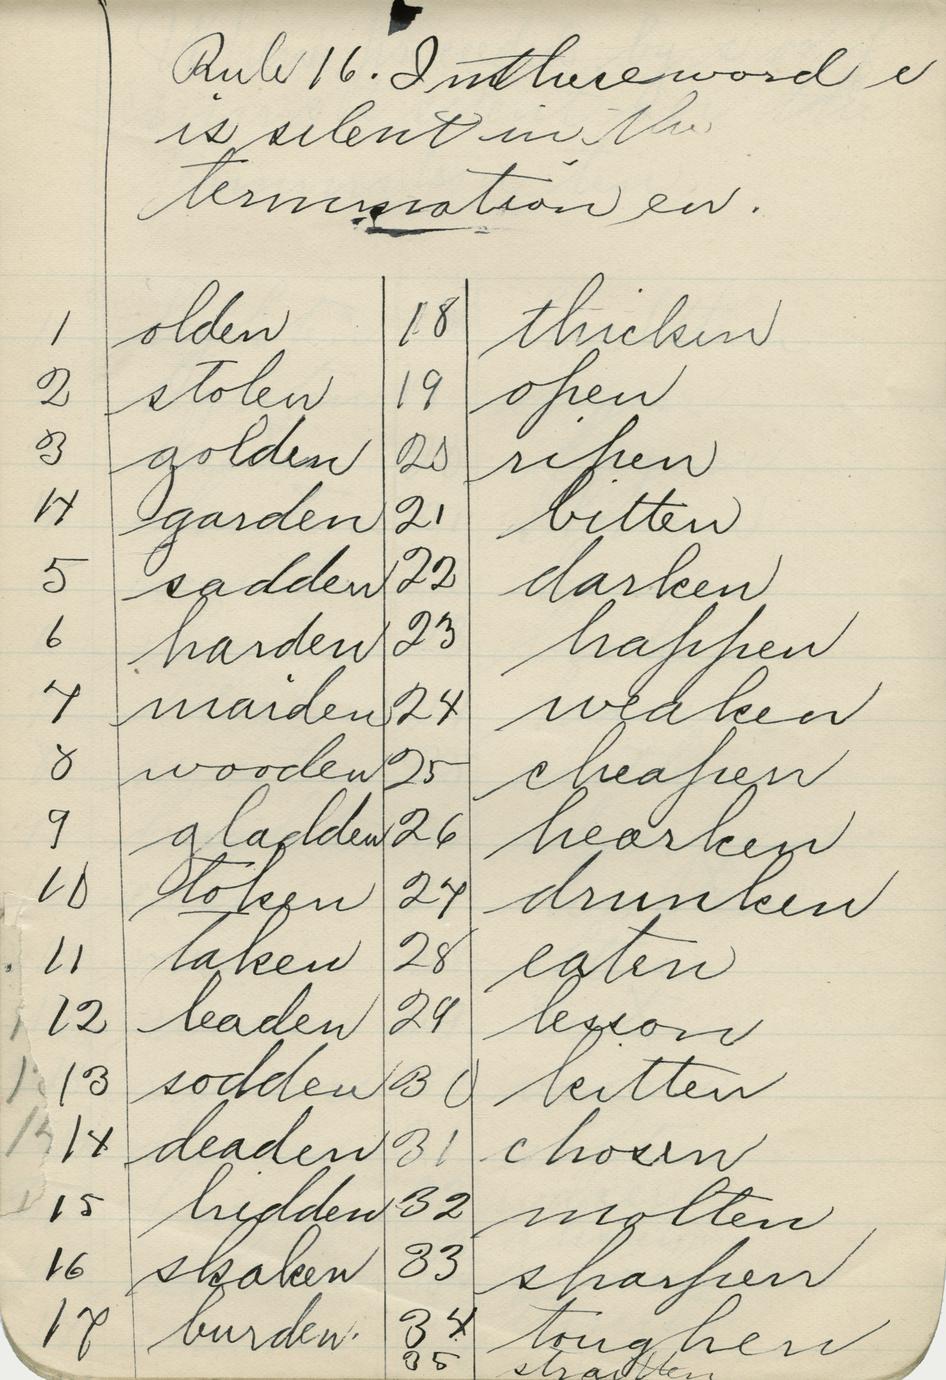 Rule 16. In these word e
is silent in the
termination en.
1 olden 18 thicken
2 stolen 19 open
3 golden 20 ripen
4 garden 21 bitten
5 sadden 22 darken
6 harden 23 happen
7 maiden 24 weaken
8 wooden 25 cheapen
9 gladden 26 hearken
10 token 27 drunken
11 taken 28 eaten
12 leaden 29 lesson
13 sodden 30 kitten
14 deaden 31 chosen
15 hidden 32 molten
16 shaken 33 sharpen
17 burden. 34 toughen
35